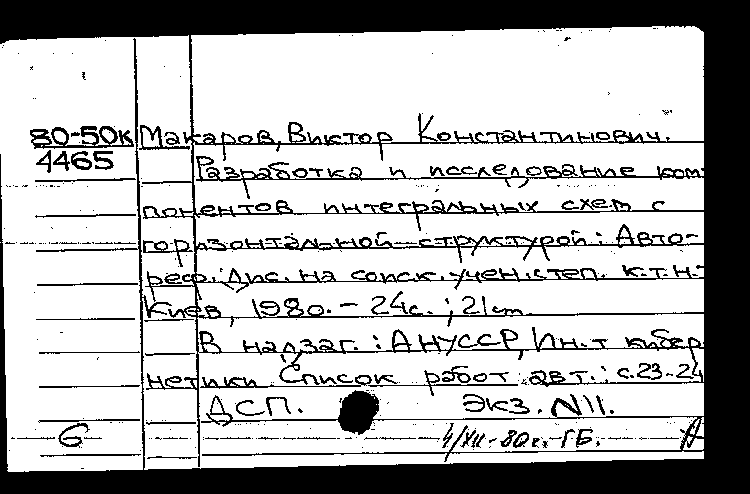 80-50к Макаров, Виктор Константинович.
4465 Разработка и исследование ком-
понентов интегральных схем с
горизонтальной структурой: Авто-
реф. Дис. на соиск. учен. степ. к.т.н.-
Киев, 1980. - 24с.; 21см.
В надзаг.: АН УССР, Ин-т кибер-
нетики. Список работ авт.: с.23-24
ДСП. Экз. N11.
6 4/XII-80г. ГБ. А